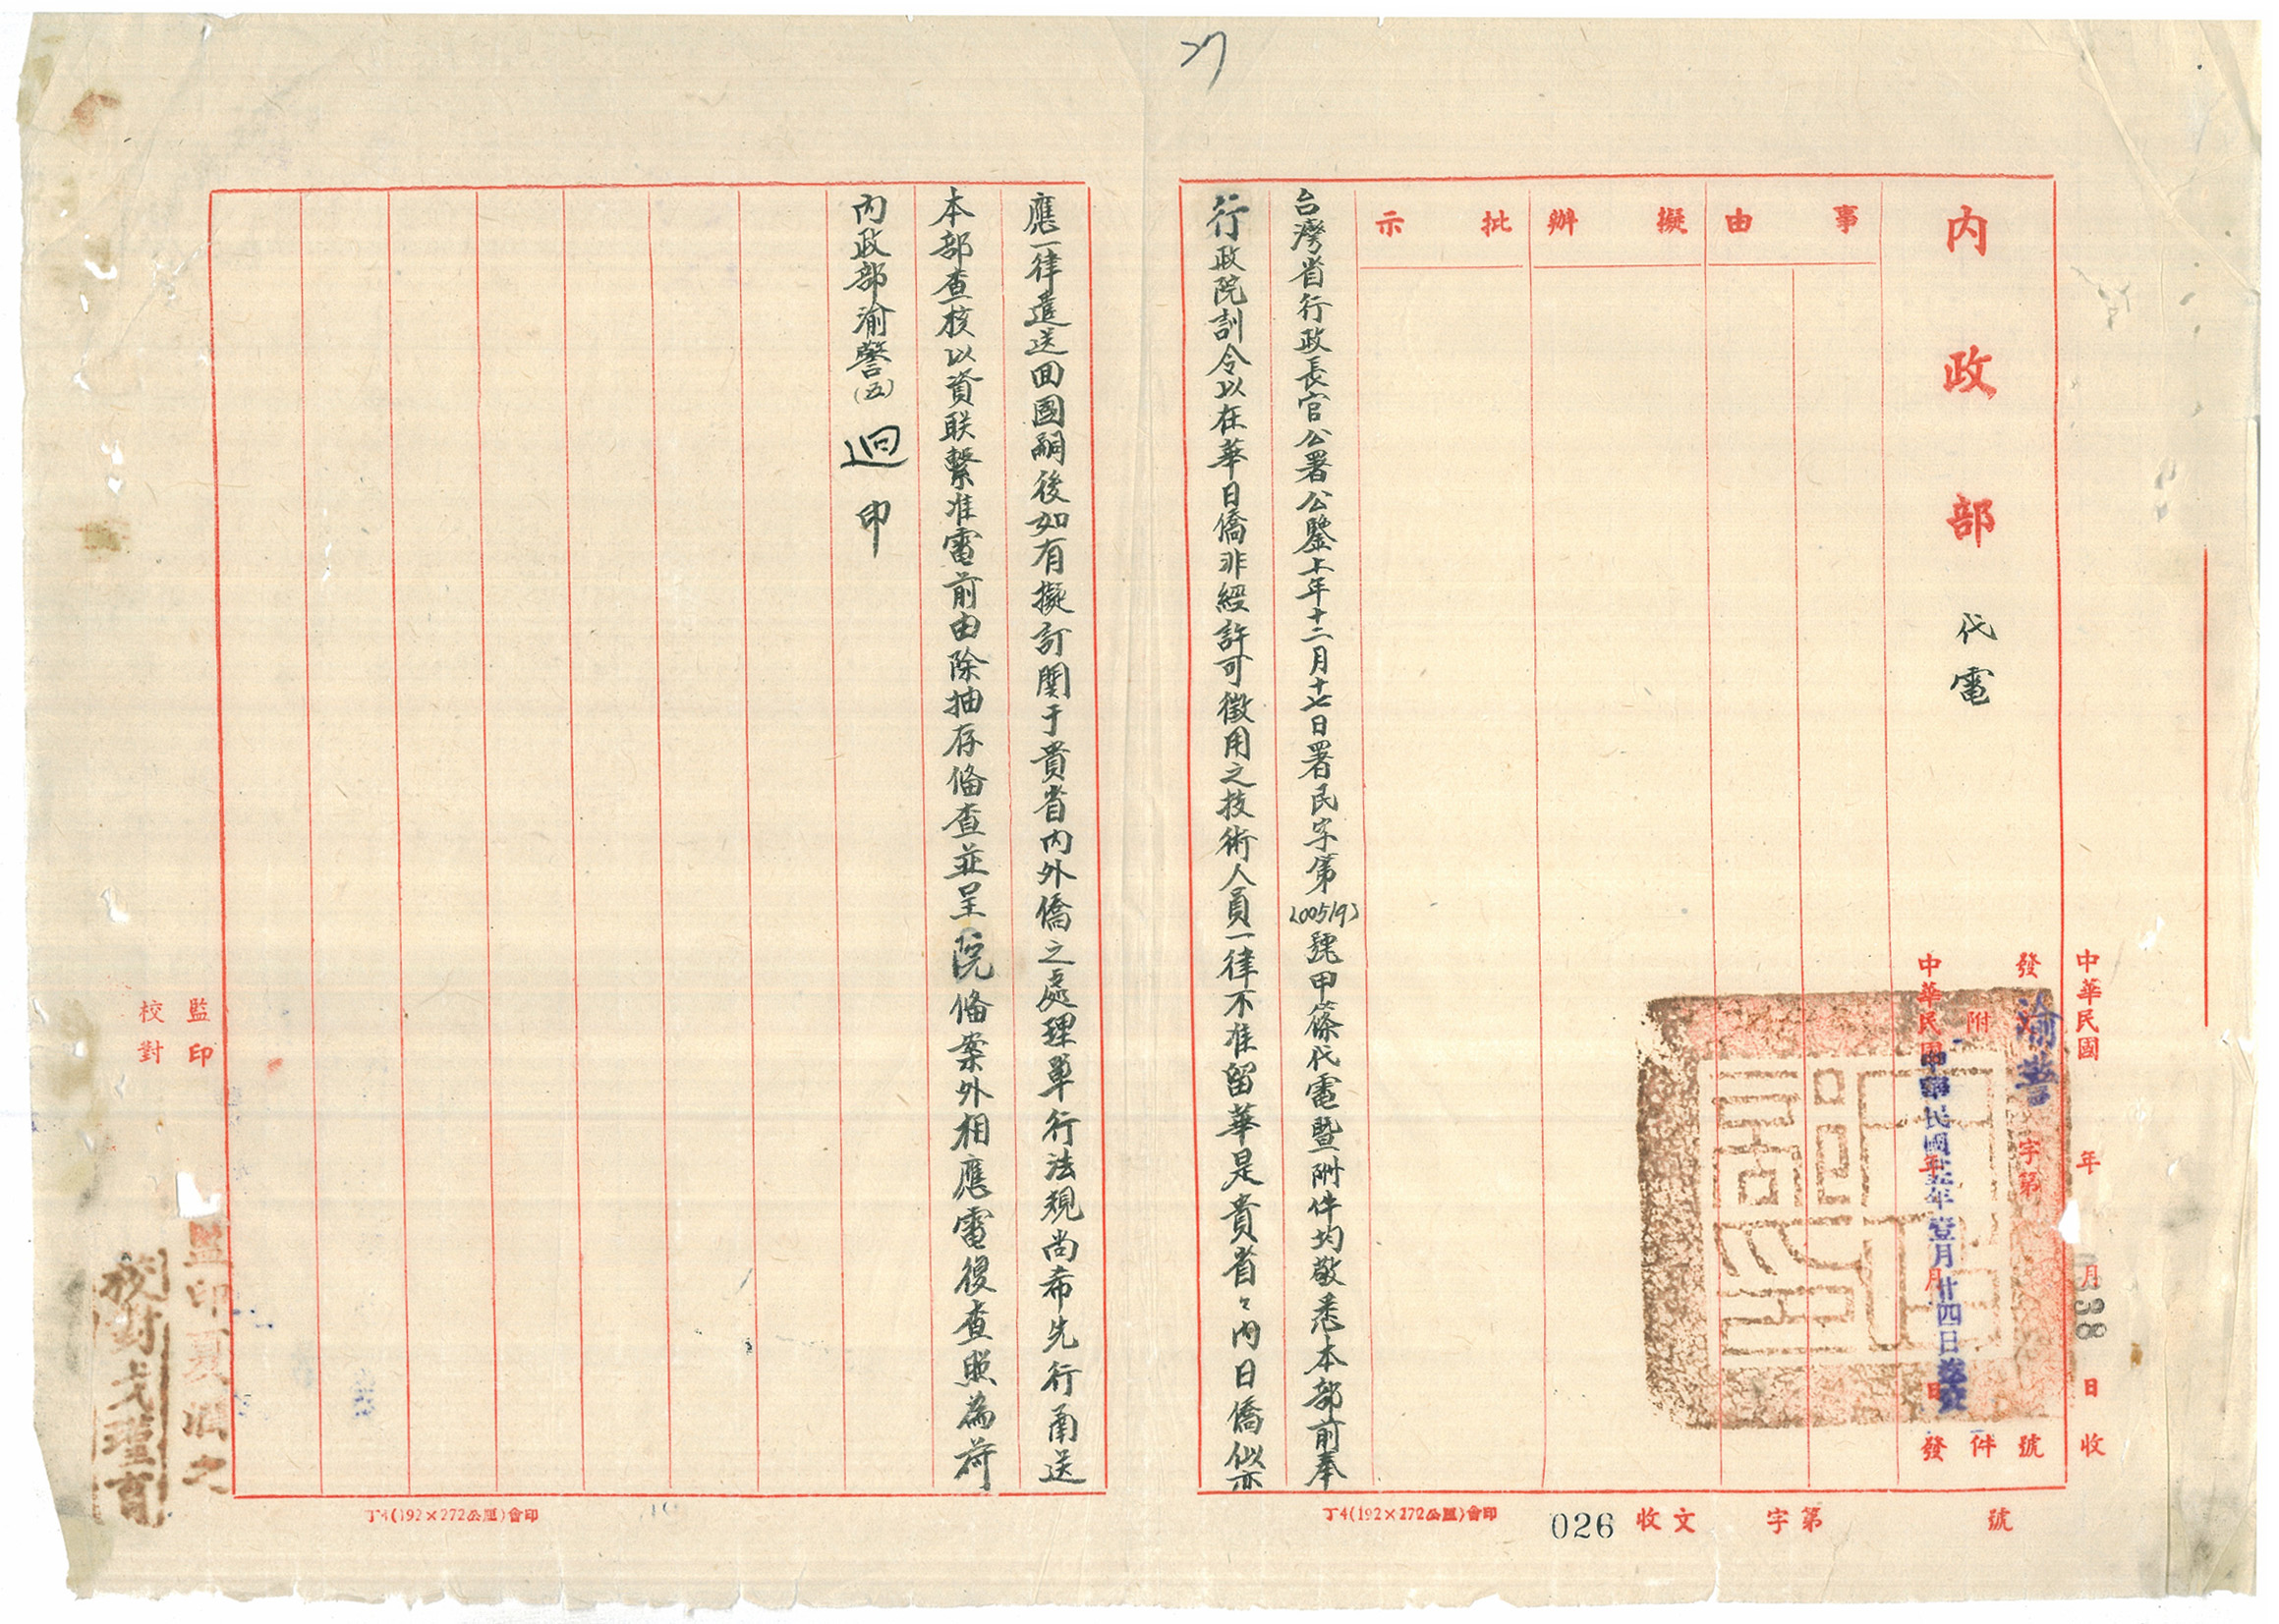 27
內政部 代電
中華民國 年 月 日收
發文 渝警 字第 號
附 件
中華民國 年 月 日發
中華民國卅五年壹月廿四日
038
事由
擬辦
批示
台灣省行政長官公署公鑒上年十二月十七日署民字第(00519)號甲篠代電暨附件均敬悉本部前奉
行政院訓令以在華日僑非經許可徵用之技術人員一律不准留華是貴省々內日僑似亦
應一律遣送回國嗣後如有擬訂關于貴省內外僑之處理單行法規尚希先行甭送
本部查核以資联繫准電前由除抽存俻查並呈院俻案外相應電復查照為荷
內政部渝警(五)迴印
監印
校對
監印夏
校對
丁4(192×272公厘)會印
丁4(192×272公厘)會印
026
收文 字第 號